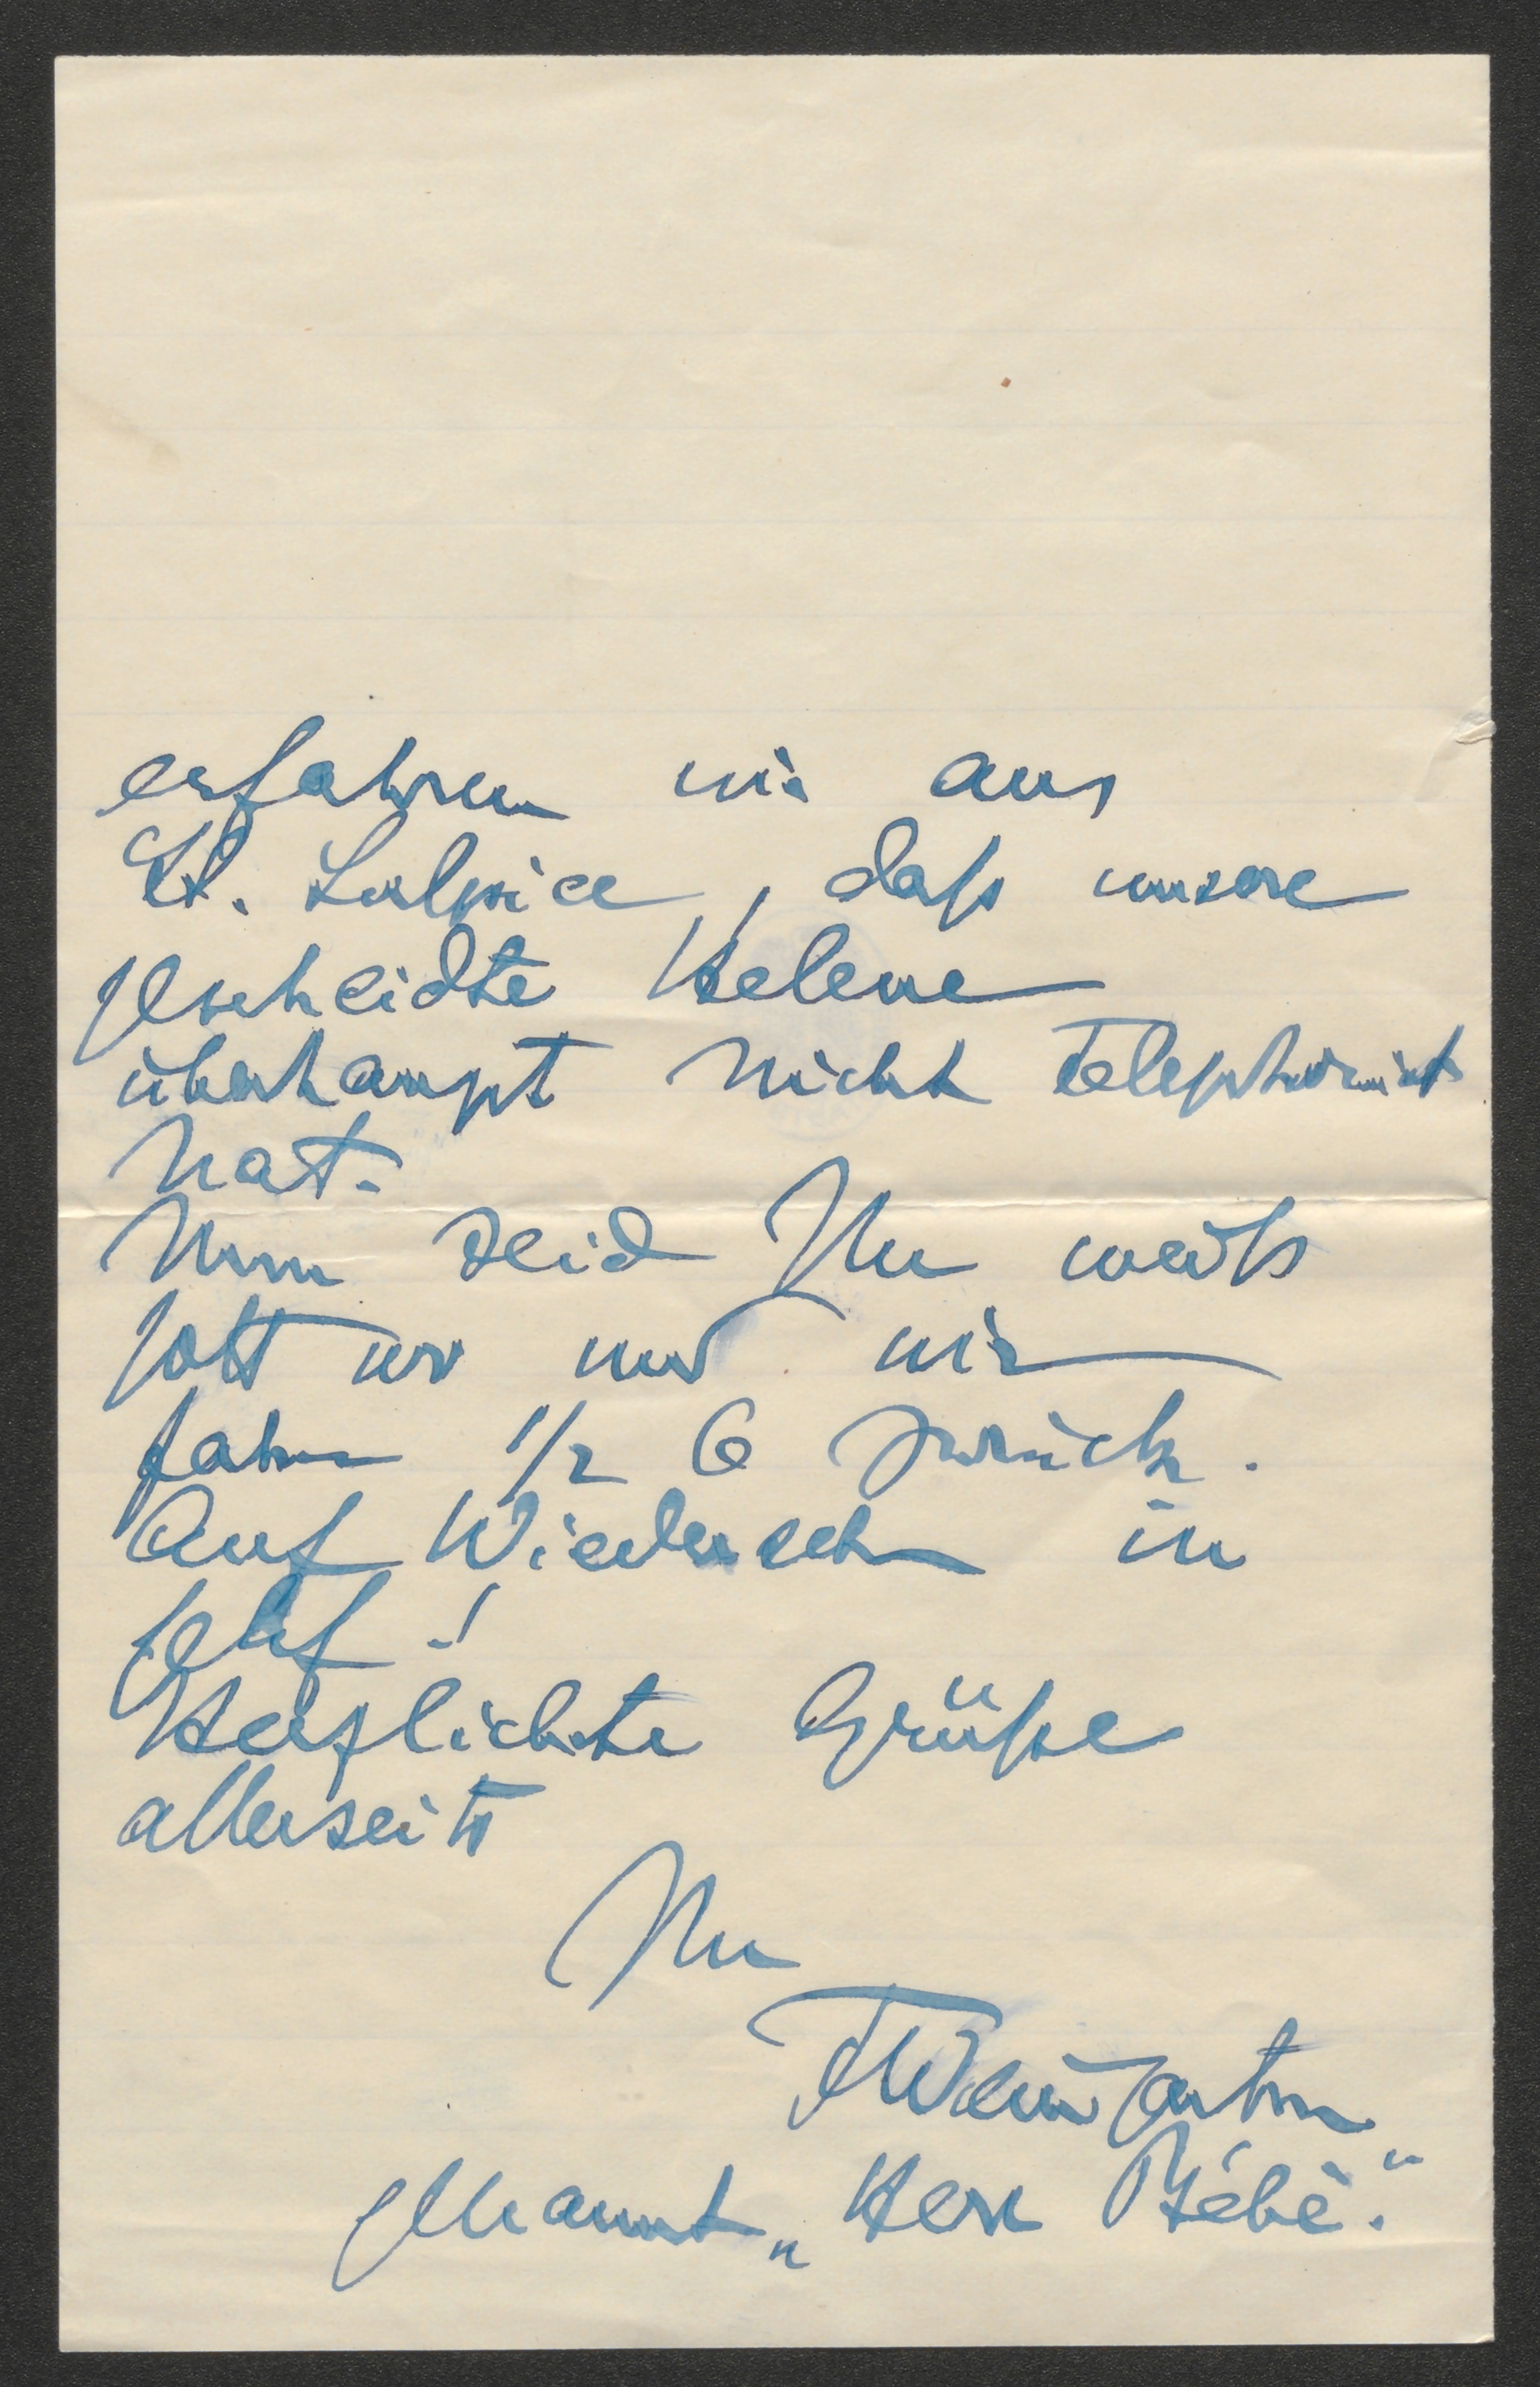 erfahren wir aus
St. Sulpice, daß unsere
gscheidte Helene
überhaupt nicht telephoniert
hat.
Nun seid Ihr weiß
Gott wo und wir
fahren 1/2 6 zurück.
Auf Wiedersehen in
Genf!
Herzlichste Grüße
allerseits
Ihr
FWeingartner
genannt „Herr Bébé."